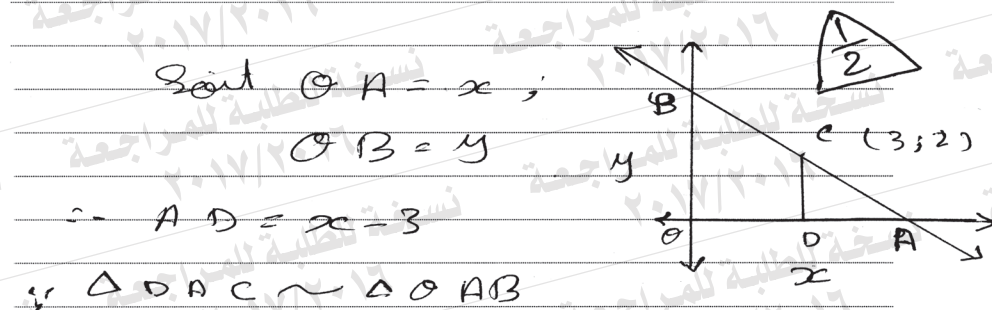 Soit OA = x ;
OB = y
∴ AD = x - 3
∵ △DAC ~ △OAB
1/2
B
C (3;2)
y
O
D
A
x
نسخة للطلبة للمراجعة
٢٠١٧/٢٠١٦